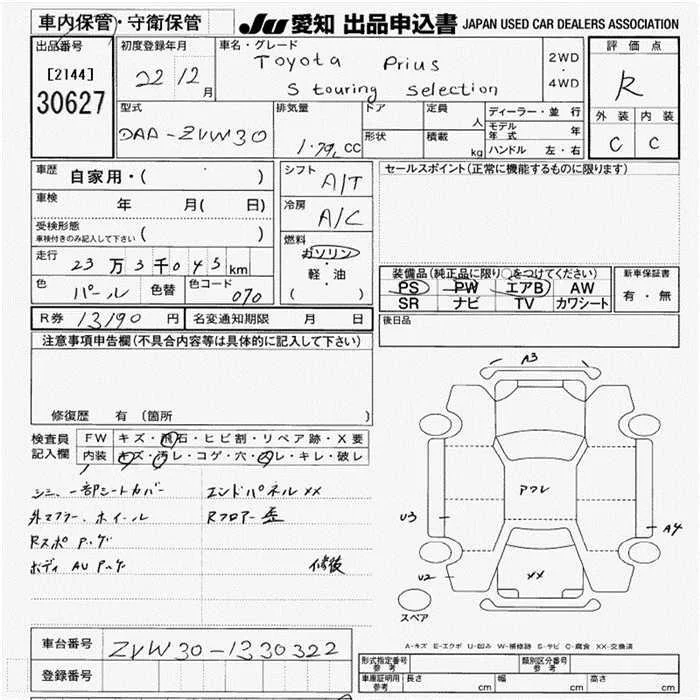 車内保管・守衛保管
JU 愛知 出品申込書 JAPAN USED CAR DEALERS ASSOCIATION
出品番号
[2144]
30627
初度登録年月
22 12月
車名・グレード
Toyota Prius
S touring selection
2WD
・
4WD
評価点
R
外装 内装
C C
型式
DAA-ZVW30
排気量
1.79L CC
ドア
形状
定員
人
積載
kg
ディーラー・並行
モデル年式 年
ハンドル 左・右
車歴
自家用・( )
車検
年 月( 日)
受検形態
車検付きのみ記入して下さい ( )
走行
23万3千045km
色
パール
色替
色コード
070
シフト
A/T
冷房
A/C
燃料
ガソリン
・
軽・油
( )
セールスポイント(正常に機能するものに限ります)
装備品(純正品に限り○をつけてください)
PS PW エアB AW
SR ナビ TV カワシート
新車保証書
有・無
R券 13190 円 名変通知期限 月 日
後日品
注意事項申告欄(不具合内容等は具体的に記入して下さい)
修復歴 有 (箇所 )
検査員
記入欄
FW キズ・飛石・ヒビ割・リペア跡・X要
内装 キズ・汚レ・コゲ・穴・スレ・キレ・破レ
シミ、一部シートカバー エンドパネルXX
外マフラー、ホイール Rフロアー歪
Rスポ P.ゲ
ボディ AU P.ゲ 修後
A3
アワレ
U3
A4
U2
XX
スペア
A-キズ E-エクボ U-凹み W-補修跡 S-サビ C-腐食 XX-交換済
車台番号 ZVW30-1330322
登録番号
形式指定番号
参考
類別区分番号
参考
車庫証明用
参考
長さ cm 幅 cm 高さ cm